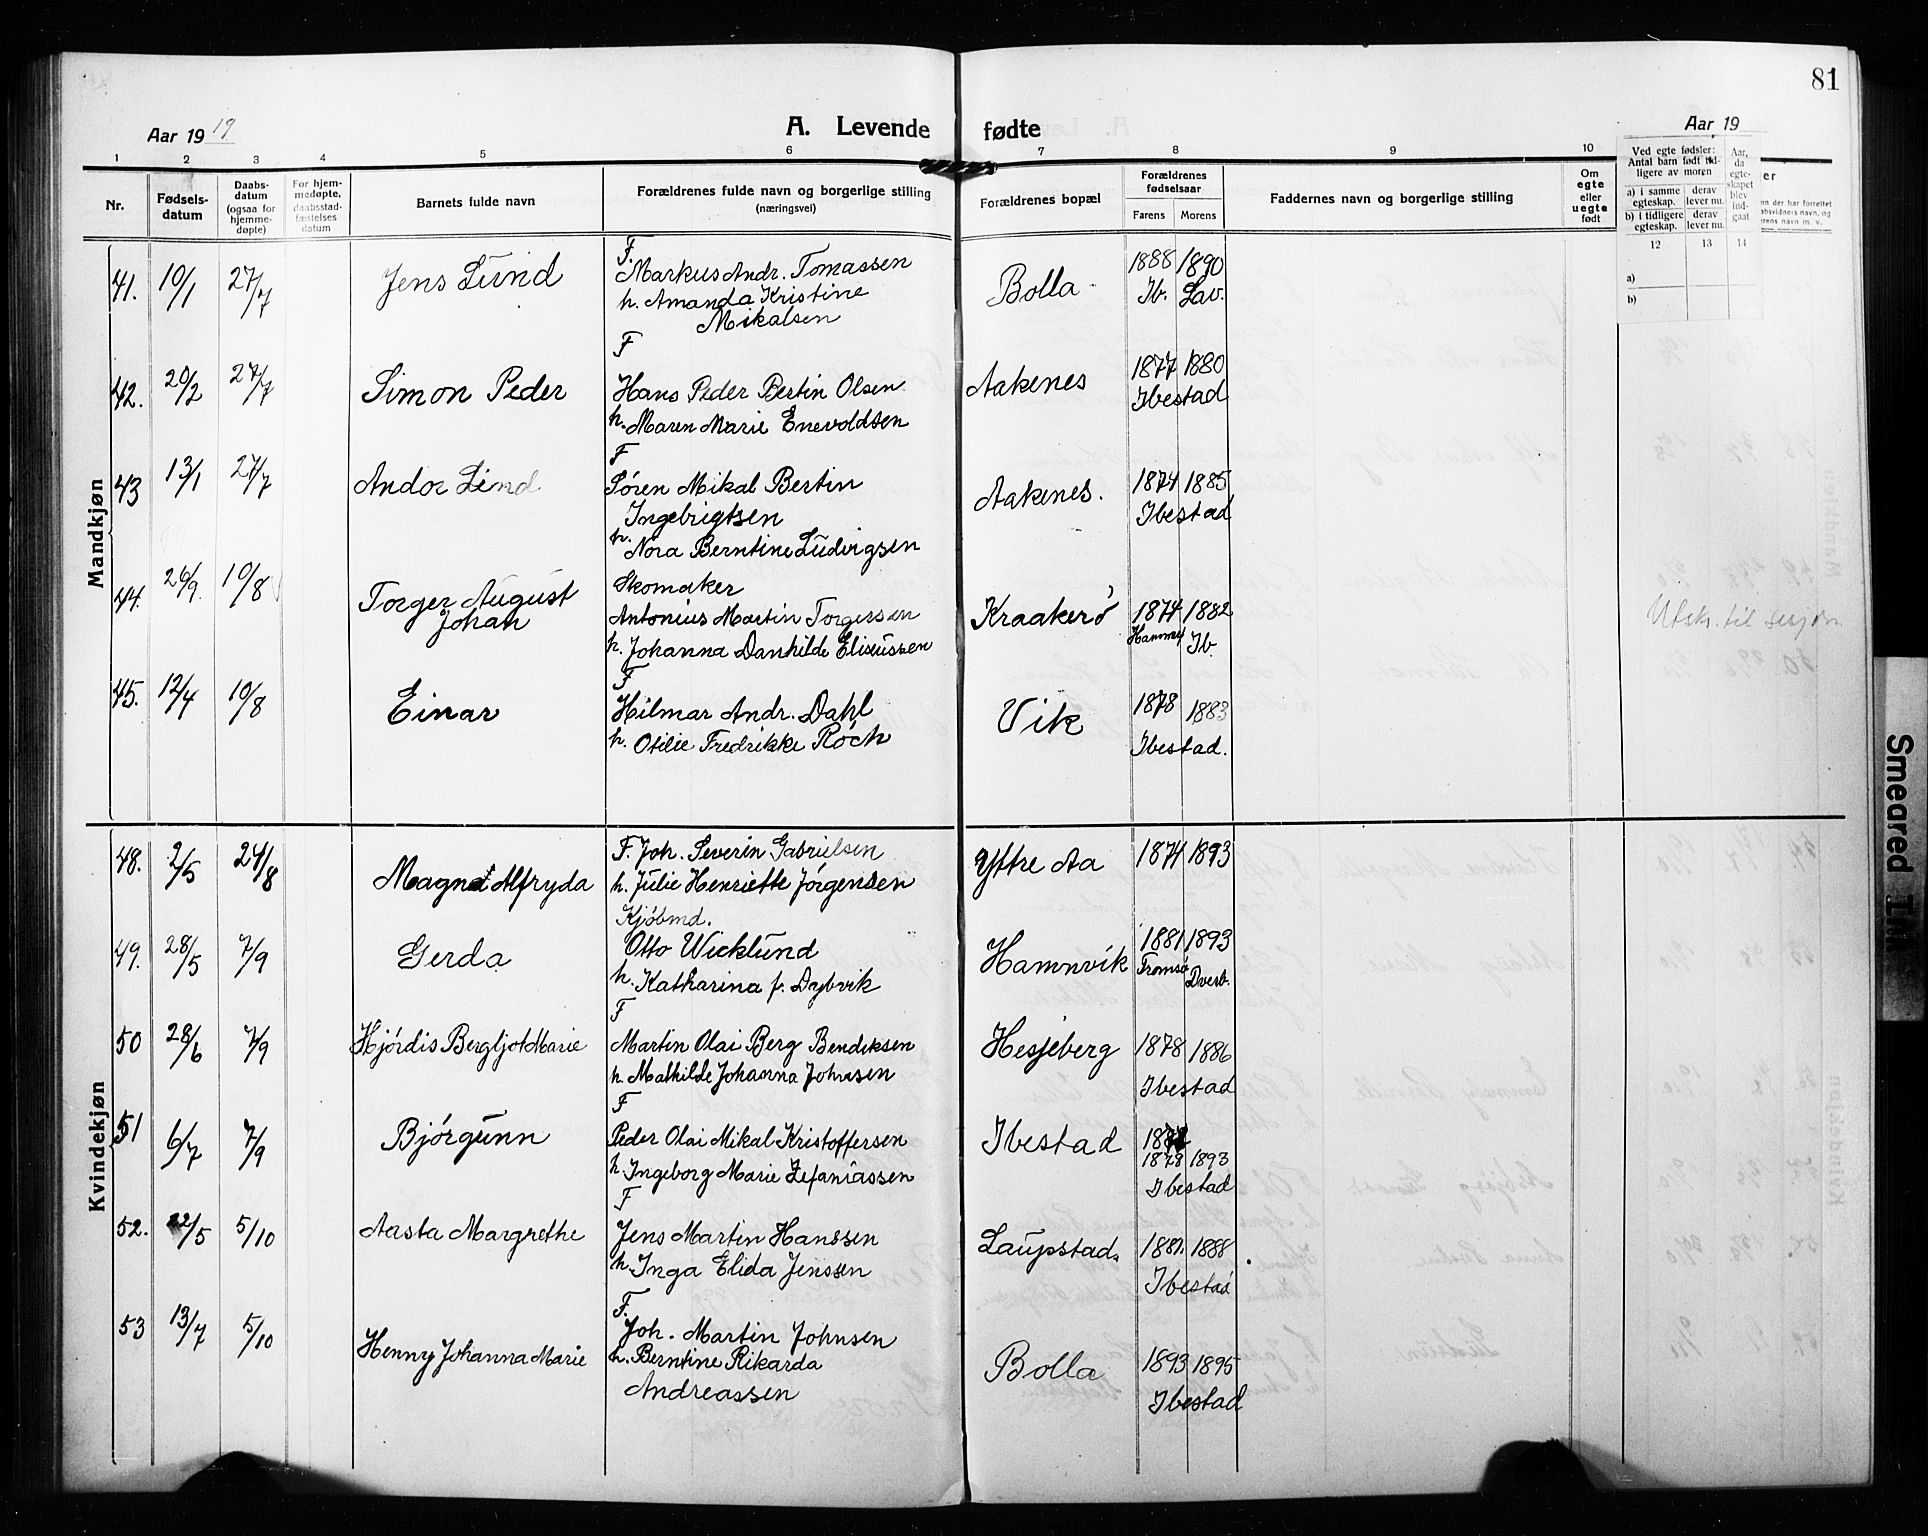 81
Aar 1919
A. Levende
fødte
Aar 19
1 2 3 4 5 6 7 8 9 10
Nr.
Fødsels-
datum
Daabs-
datum
(ogsaa for
hjemme-
døpte)
For hjem-
medøpte,
daabsstad-
fæstelses
datum
Barnets fulde navn
Forældrenes fulde navn og borgerlige stilling
(næringsvei)
Forældrenes bopæl
Forældrenes
fødselsaar
Farens Morens
Faddernes navn og borgerlige stilling
Om
egte
eller
uegte
født
Ved egte fødsler:
Antal barn født tid-
ligere av moren
a) i samme
egteskap.
derav
lever nu.
b) i tidligere
egteskap.
derav
lever nu.
Aar,
da
egte-
skapet
blev
ind-
gaat
12 13 14
a)
b)
er
Mandkjøn
41. 10/1 27/7 Jens Lund
F.
Markus Andr. Tomassen
h. Amanda Kristine
Mikalsen
Bolla 1888 1890
Ib. Lav.
42. 20/2 27/7 Simon Peder
F
Hans Peder Bertin Olsen
h. Maren Marie Enevoldsen
Aakenes 1877 1880
Ibestad
43 13/1 27/7 Andor Lind
F
Søren Mikal Bertin
Ingebrigtsen
h.
Nora Berntine Ludvigsen
Aakenes. 1874 1885
Ibestad
44. 26/9. 10/8 Torger August
Johan
Skomaker
Antonius Martin Torgersen
h. Johanna Danhilde Eliseussen
Kraakerø 1874 1882
Hammerf Ib.
Utskr. til sesjon
45. 12/4 10/8 Einar
F
Hilmar Andr. Dahl
h. Otilie Fredrikke Röch
Vik 1878 1883
Ibestad.
Kvindekjøn
48. 2/5 24/8 Magna Alfryda
F. Joh. Severin Gabrielsen
h. Julie Henriette Jørgensen
Yttre Aa 1874 1893
49. 28/5 7/9 Gerda
Kjøbmd.
Otto Wicklund
h. Katharina f. Dybvik
Hamnvik 1881 1893
Tromsø Dverb.
50 28/6 7/9 Hjørdis Bergljot Marie
F
Martin Olai Berg Bendiksen
h. Mathilde Johanna Johnsen
Hesjeberg 1878 1886
Ibestad
51 6/7 7/9 Bjørgunn
F
Peder Olai Mikal Kristoffersen
h. Ingeborg Marie Zefaniassen
Ibestad
1878 1893
Ibestad
52. 22/5 5/10 Aasta Margrethe
F
Jens Martin Hanssen
h. Inga Elida Jenssen
Laupstad 1881. 1888
Ibestad
53 13/7 5/10 Henny Johanna Marie
F.
Joh. Martin Johnsen
h. Berntine Rikarda
Andreassen
Bolla 1893 1895
Ibestad
Smeared Ink